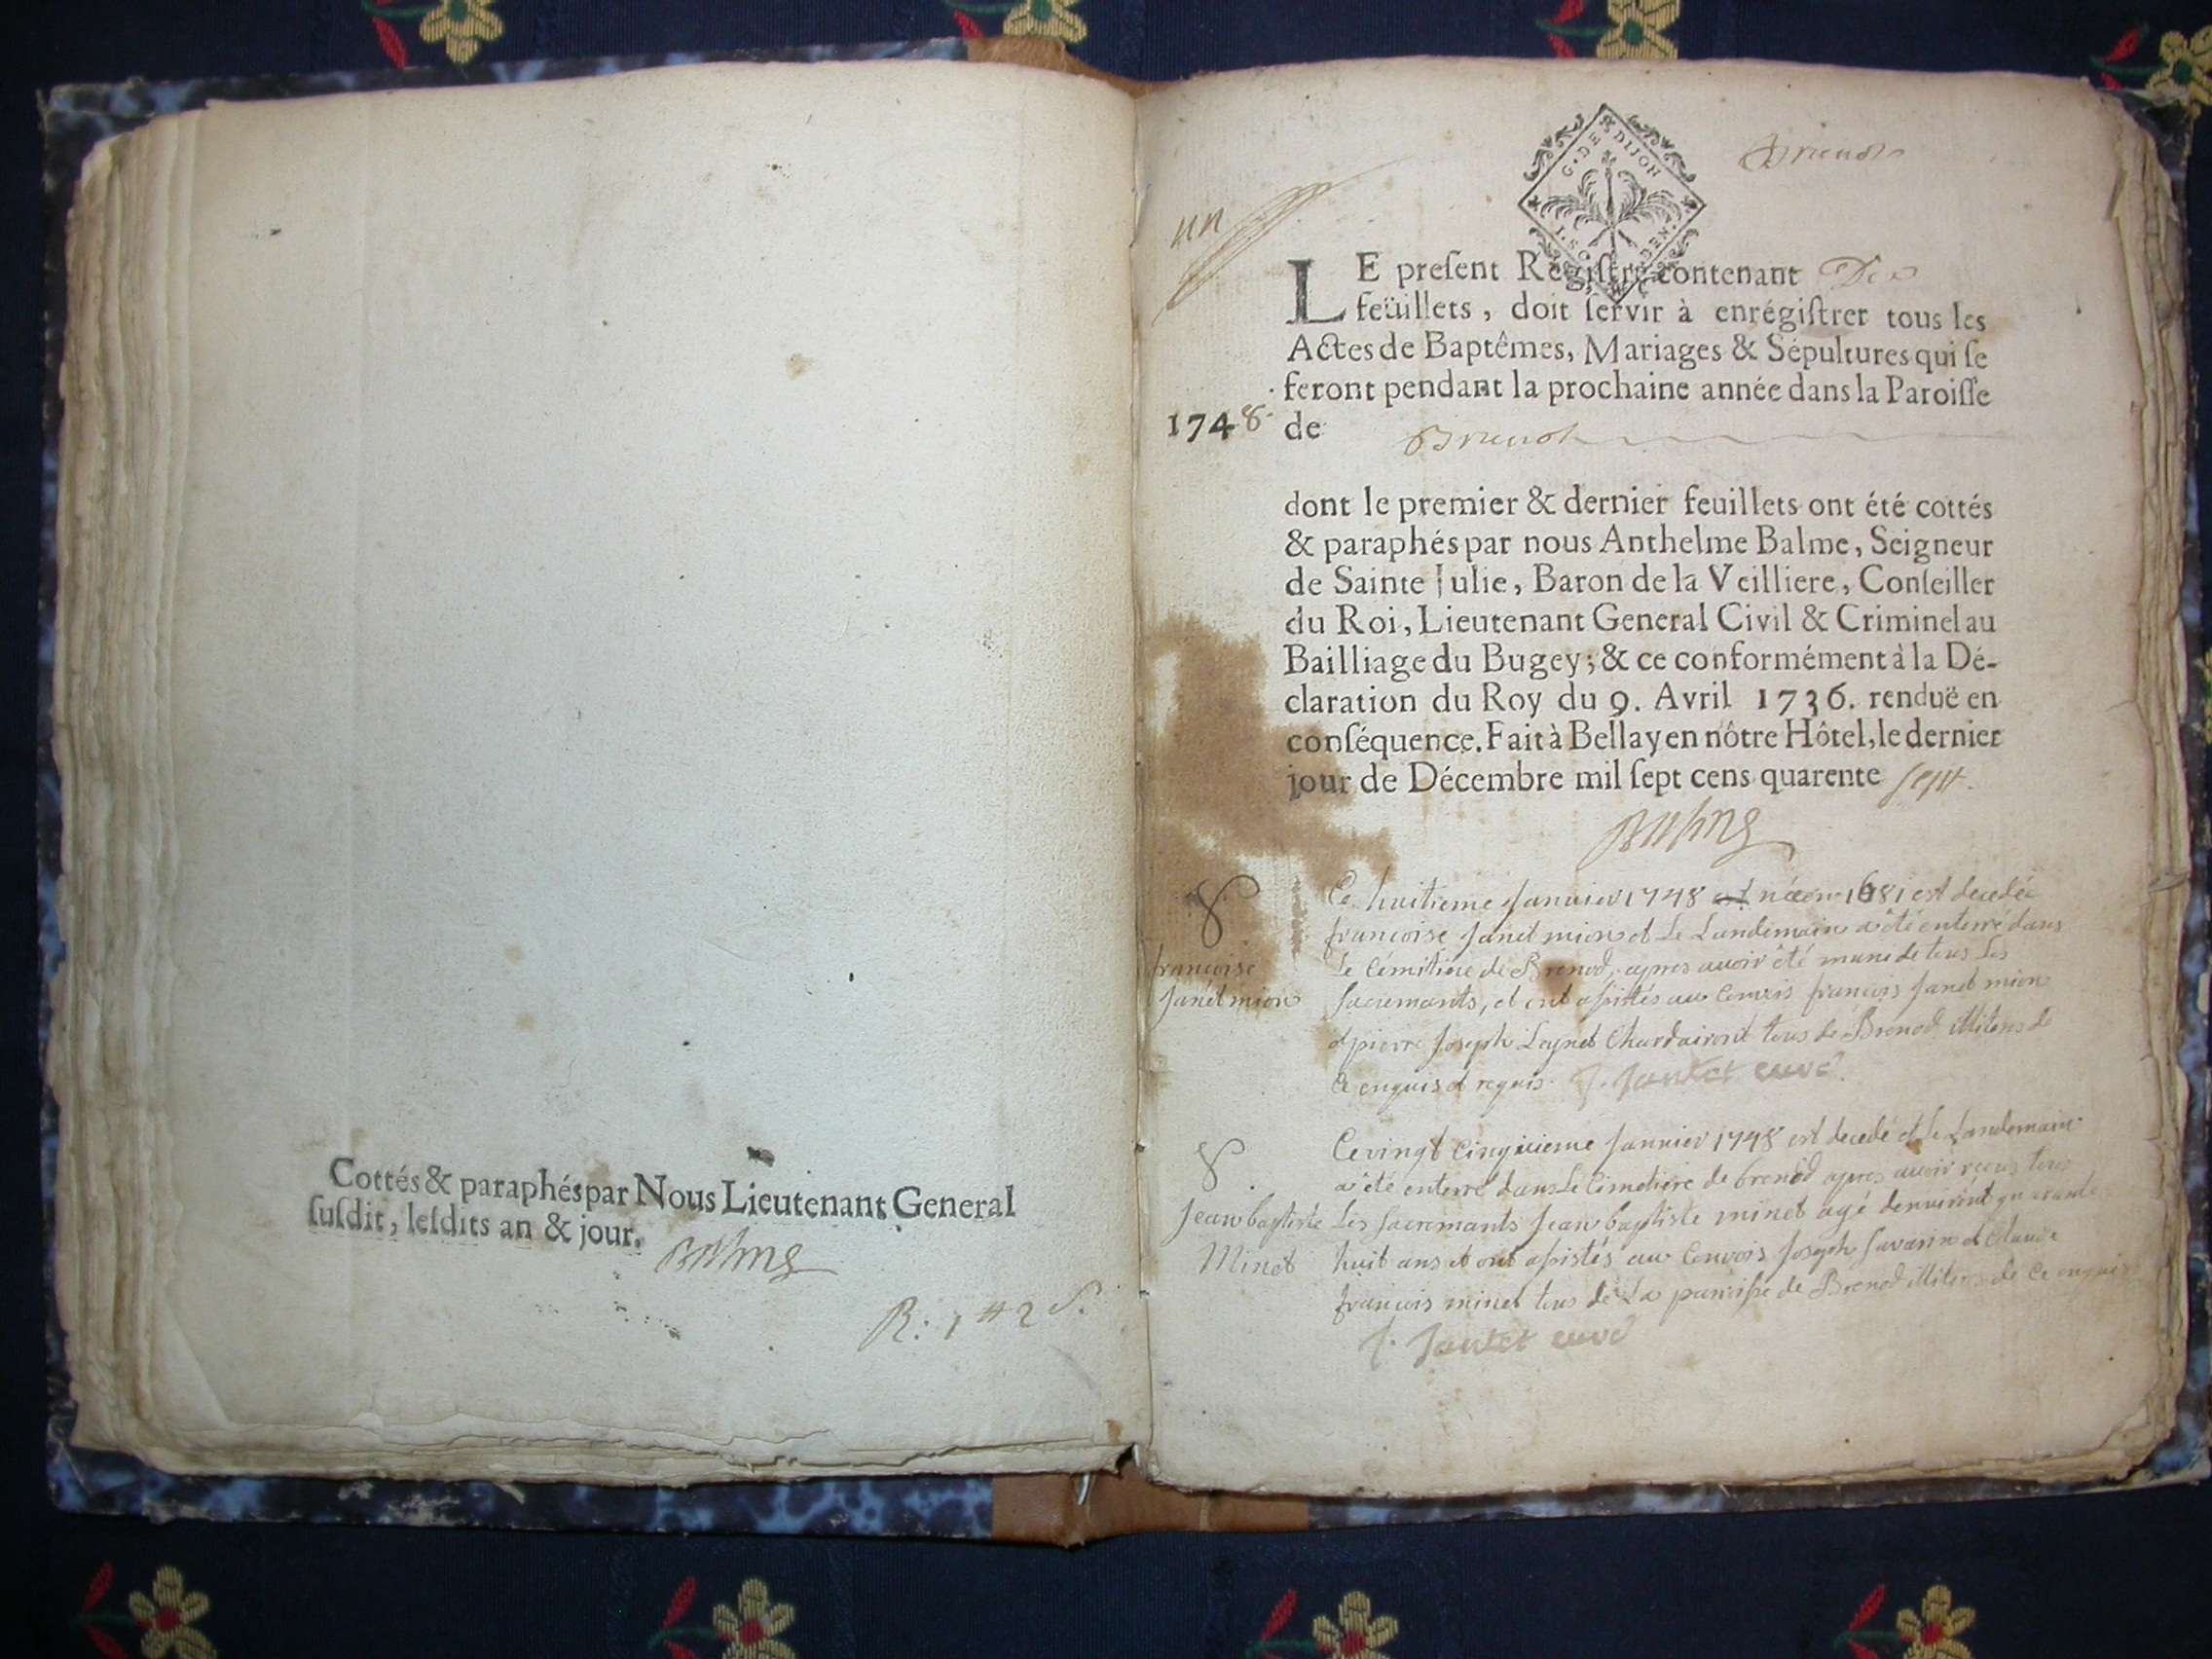 Cottés & paraphés par Nous Lieutenant General
ſuſdit, leſdits an & jour.
Balme
R: 1 ₶ 2 ſ.
G. DES DIJON
DEN.
Brenod
un
LE preſent Regiſtre contenant Dix
feüillets, doit ſervir à enrégiſtrer tous les
Actes de Baptêmes, Mariages & Sépultures qui ſe
feront pendant la prochaine année dans la Paroiſſe
1748. de Brenod
dont le premier & dernier feuillets ont été cottés
& paraphés par nous Anthelme Balme, Seigneur
de Sainte Julie, Baron de la Veilliere, Conſeiller
du Roi, Lieutenant General Civil & Criminel au
Bailliage du Bugey; & ce conformément à la Dé-
claration du Roy du 9. Avril 1736. renduë en
conſéquence. Fait à Bellay en nôtre Hôtel, le dernier
jour de Décembre mil ſept cens quarente sept.
Balme
S
françoise
Janet mion
Ce huitieme Janvier 1748 née en 1681 est decedée
françoise Janet mion et Le Landemain a été enterré dans
Le Cémitiere de Brenod, apres avoir été muni de tous Les
Sacremants, et ont assistés au Convois françois Janet mion
et pierre Joseph Leynet Chardairont tous de Brenod illiteres de
Ce enquis et requis. J. Jantet curé.
S.
Jean baptiste
Minet
Ce vingt Cinquieme Janvier 1748 est decedé et Le Landemain
a été enterré dans Le Cimetiere de brenod apres avoir reçus tous
Les Sacremants Jean baptiste minet agé denviront quarante
huit ans et ont assistés au Convois Joseph Savarin et Claude
françois minet tous de La paroisse de Brenod illiteres de Ce enquis
J. Jantet curé